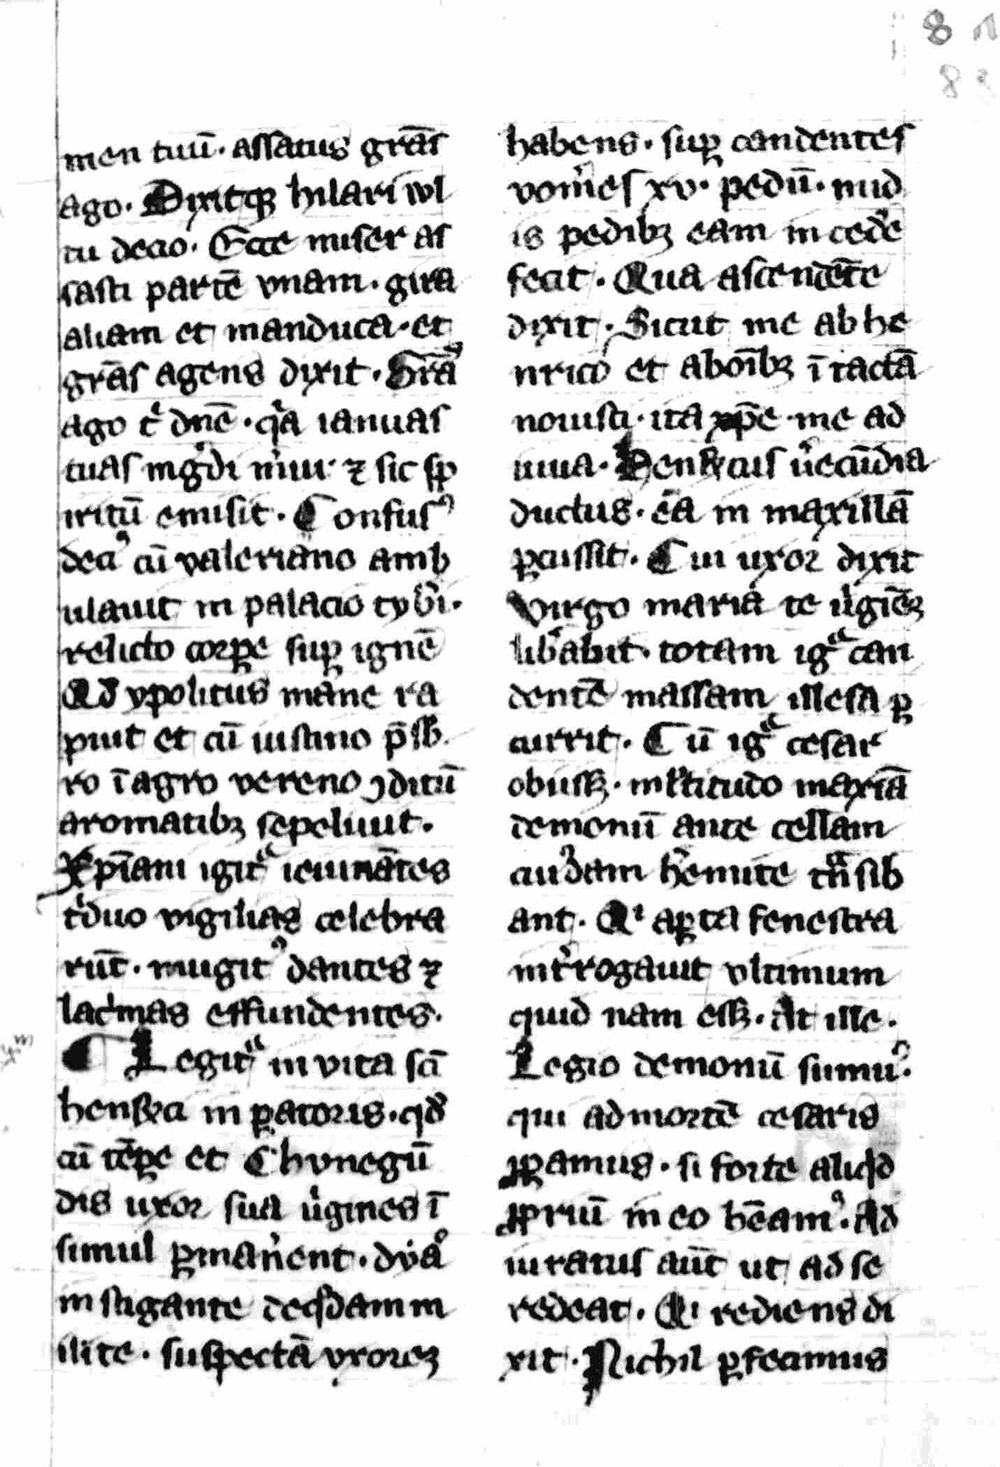 8
8
men tuū · assatus grās
ago · Dixitqꝫ hilari wl
tu decio · Ecce miser as
sasti partē vnam · gira
aliam et manduca · et
grās agens dixit · Grāˢ
ago tⁱ dn̄e · qͣa ianuas
tuas ingͬdi mͬui · ⁊ sic sp
iritū emisit · Confusꝰ
deciꝰ cū valeriano amb
ulauit in palacio tyb̓i ·
relicto corꝑe suꝑ ignē
Qd̓ ypolitus mane ra
puit et cū iustino p̄sb.
ro ī agro vereno ꝯditū
aromatibꝫ sepeliuit ·
Xp̄iani igitͬ ieiunātes
tⁱduo vigilias celebra
rūt · mugitꝰ dantes ⁊
lacͥmas effundentes ·
¶ Legitͬ in vita scī
henrici inꝑatoris · qd̓
cū īꝑe et Chunegū
dis uxor sua uͥgines ī
simul ꝑman̓ent · dyaᵒ
instigante de qͦdam m
ilite · suspectā vxoreꝫ
habens · suꝑ candentes
vom̓es xv · pedū · nud
is pedibꝫ eam incedͤe
fecit · Qua ascendēte
dixit · Sicut me ab he
nrico et ab oīb̄ꝫ ītactā
nouisti · ita xp̄e · me ad
iuua · Henricus ue̓cūdia
ductus · eā in maxillā
ꝑcussit · Cui uxor dixit
Virgo maria te uͥgiēꝫ
lib̓abit · totam igͬ can
dentē massam illesa ꝑ
currit · Cū igͬ cesar
obiissꝫ · ml̓titudo maxīa
demonū ante cellam
cuiꝰdam h̓emite tn̄sib
ant · Qⁱ aꝑta fenestra
int̓rogauit vltimum
quid nam essꝫ · At ille ·
Legio demonū sumuꝰ ·
qui ad mortē cesaris
ꝓꝑamus · si forte aliqͥd
ꝓpriū in eo hēamꝰ · Ad
iuratus aūt ut ad se
redeat · Qⁱ rediens di
xit · Nichil ꝓfecimus